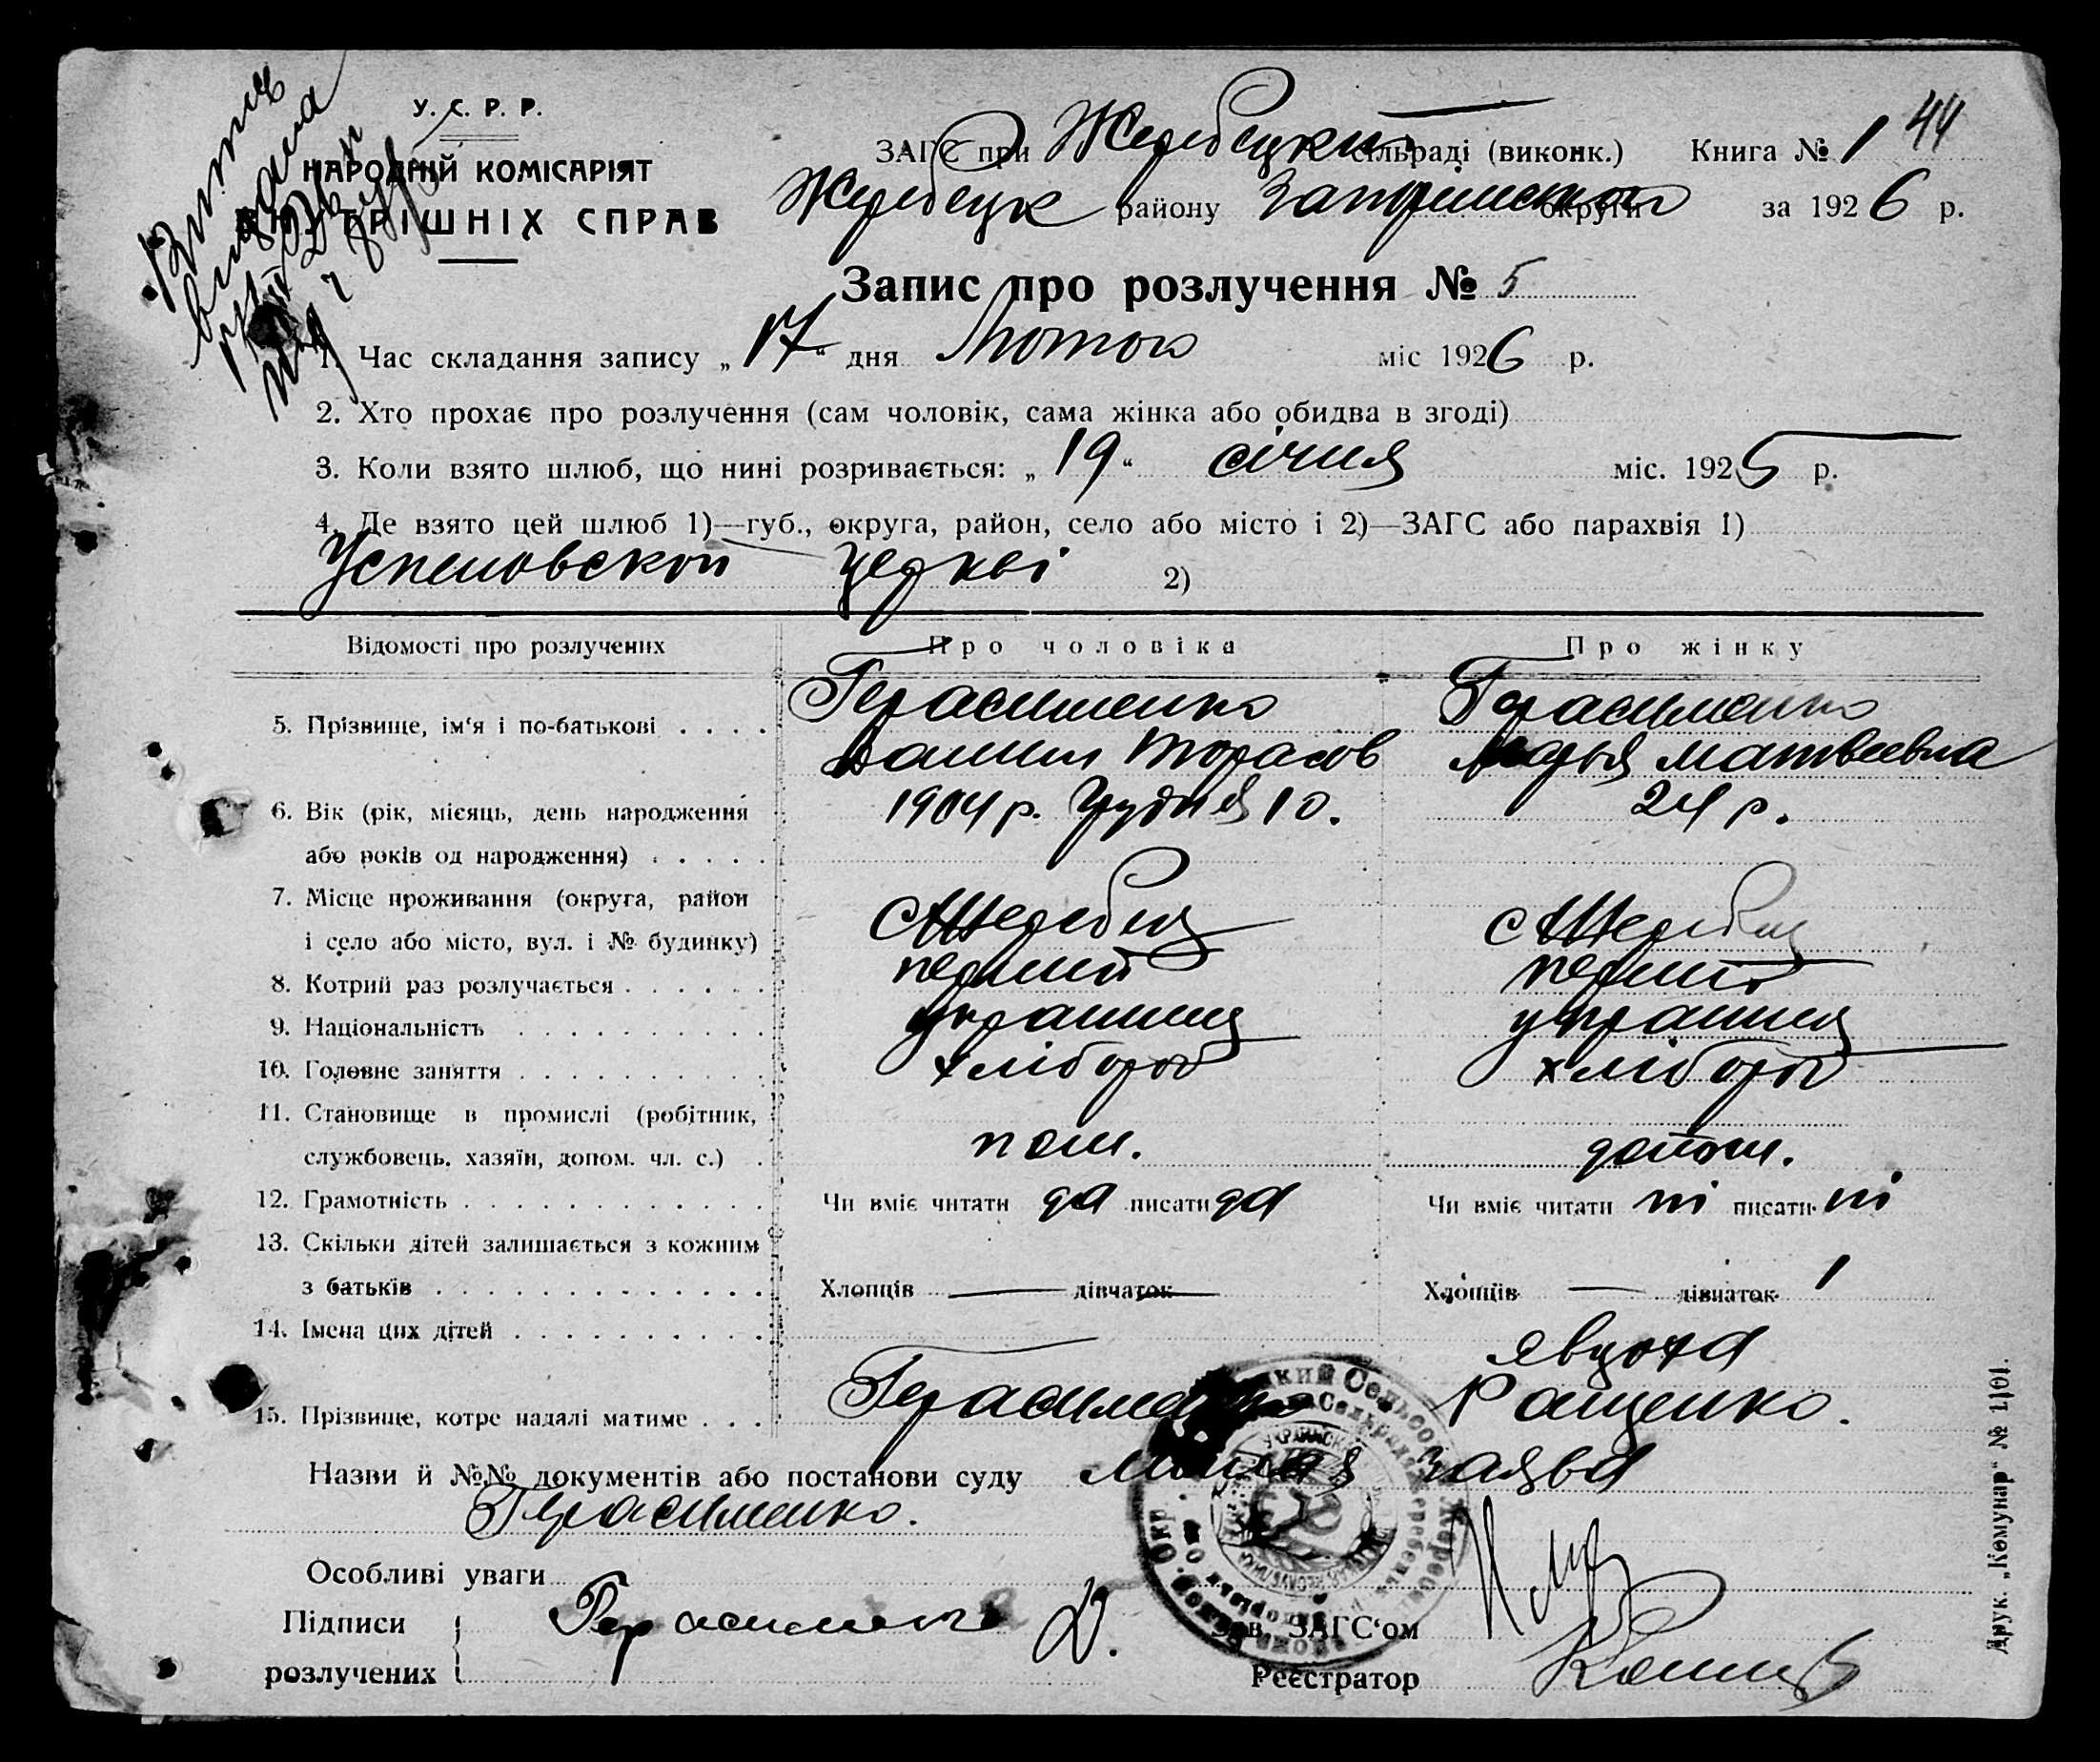 У. С. Р. Р.
НАРОДНІЙ КОМІСАРІЯТ
ВНУТРІШНІХ СПРАВ
Витяг
видана
ЗАГС при Жеребецкий сільраді (виконк.) Книга № 1 44
Жеребецк району Запоріжской округи за 1926 р.
Запис про розлучення № 5
1. Час складання запису „17“ дня Лютого міс 1926 р.
2. Хто прохає про розлучення (сам чоловік, сама жінка або обидва в згоді)
3. Коли взято шлюб, що нині розривається: „19“ січня міс. 1925 р.
4. Де взято цей шлюб 1)—губ., округа, район, село або місто і 2)—ЗАГС або парахвія 1)
Успеновской церкві 2)
Відомості про розлучених Про чоловіка Про жінку
5. Прізвище, ім‘я і по-батькові . . . . Герасименко Герасименко
Данил Торасов Марья Матвеевна
6. Вік (рік, місяць, день народження 1904 р. Грудня 10. 24 р.
або років од народження) . . . . .
7. Місце проживання (округа, район
і село або місто, вул. і № будинку) с Жеребец с Жеребец
8. Котрий раз розлучається . . . . . . перший перший
9. Національність . . . . . . . . . . украинец украинец
10. Головне заняття . . . . . . . . . . хлібороб хлібороб
11. Становище в промислі (робітник,
службовець, хазяїн, допом. чл. с.) . пом. допом.
12. Грамотність . . . . . . . . . . . . Чи вміє читати да писати да Чи вміє читати ні писати ні
13. Скільки дітей залишається з кожним
з батьків . . . . . . . . . . . . . Хлопців — дівчаток — Хлопців — дівчаток 1
14. Імена цих дітей . . . . . . . . . . Явдоха
15. Прізвище, котре надалі матиме . . . Герасименко Ращенко.
Назви й №№ документів або постанови суду заява
Герасименко.
Особливі уваги
Підписи Герасименко Д. Зав. ЗАГС‘ом
розлучених Реєстратор
Друк. „Комунар“ № 1101.